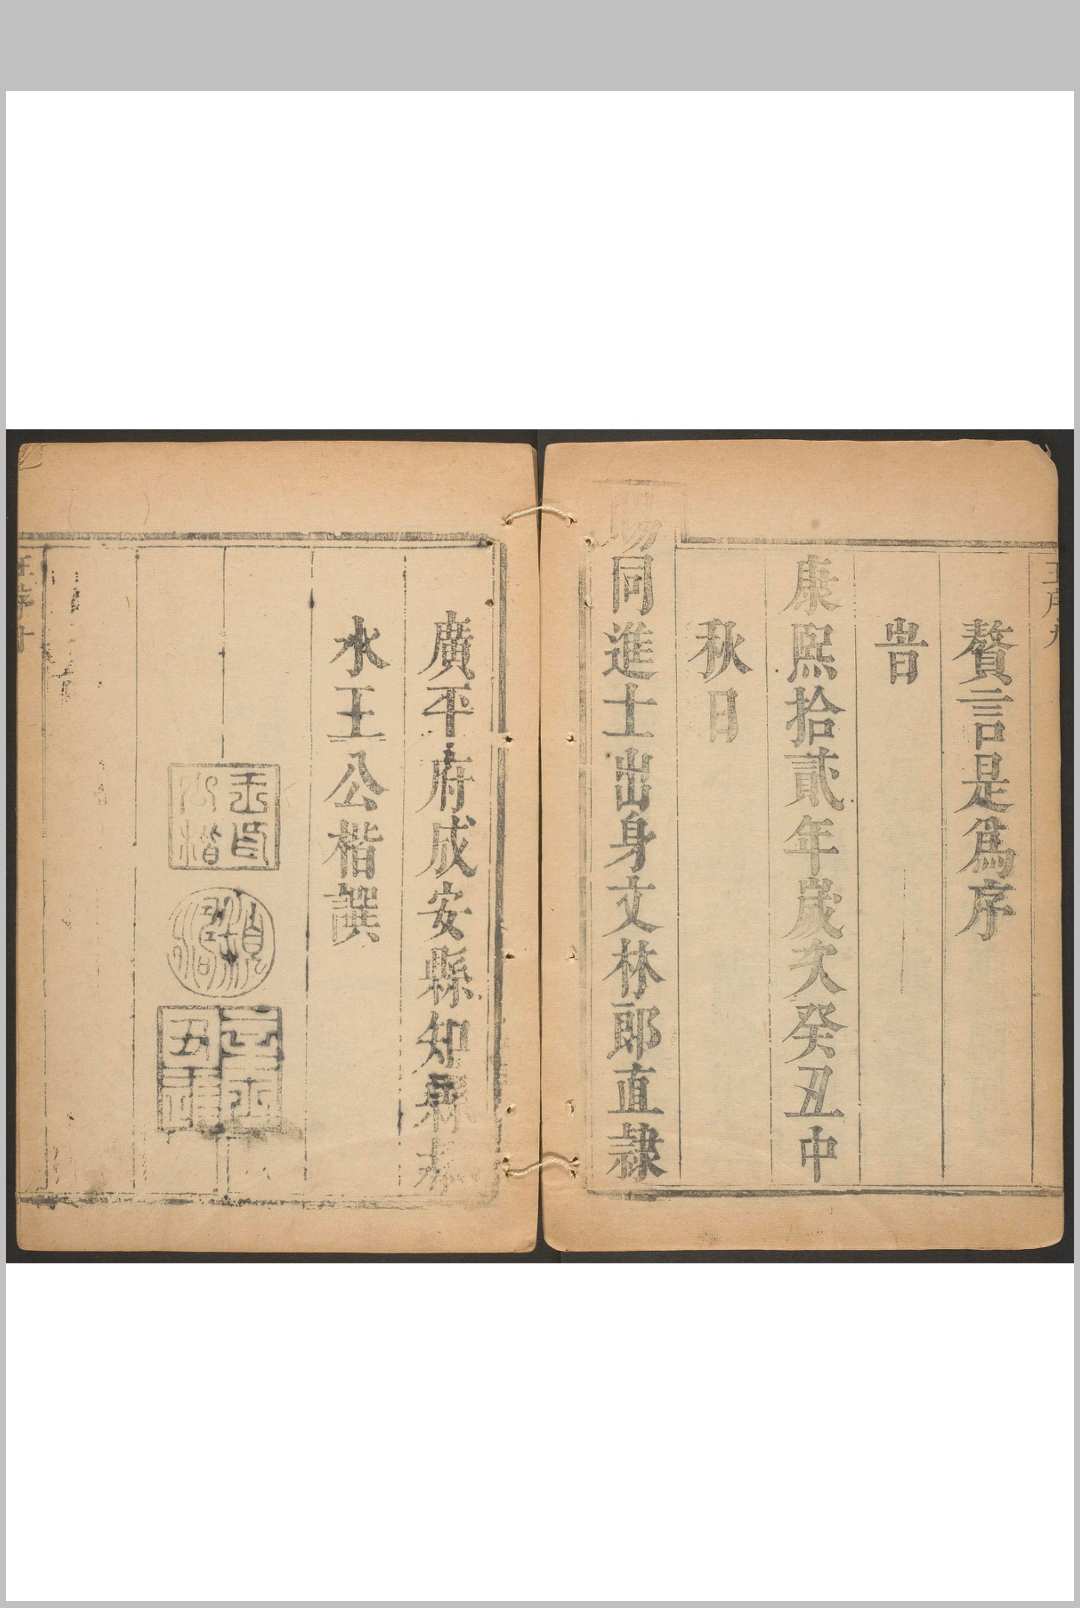 贅言是爲序
旹
康熙拾貳年歲次癸丑中
秋日
賜同進士出身文林郎直隸
廣平府成安縣知縣
水王公楷譔